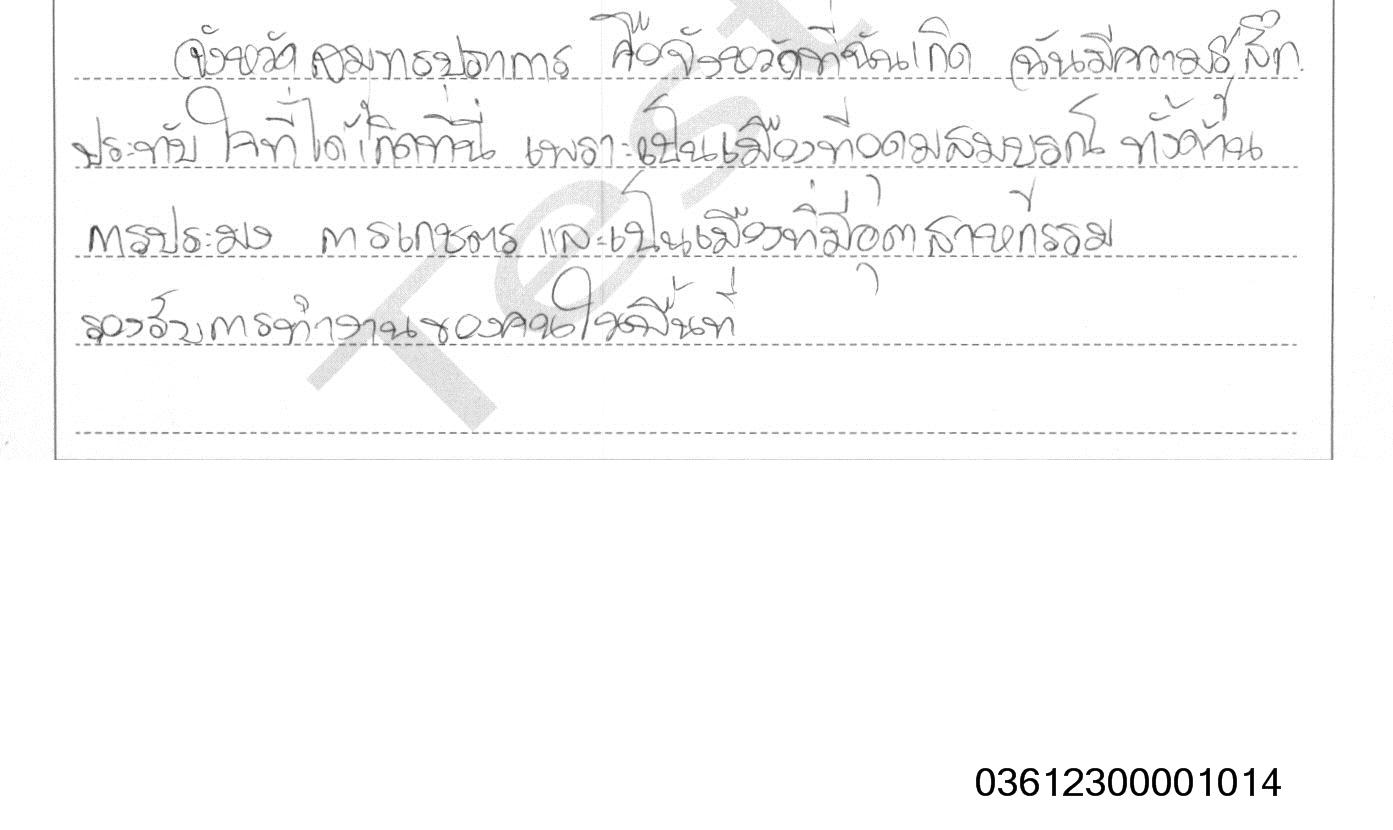 จังหวัดสมุทรปราการ คือจังหวัดที่ฉันเกิด ฉันมีความรู้สึก
ประทับใจที่ได้เกิดที่นี่ เพราะเป็นเมืองที่อุดมสมบูรณ์ ทั้งด้าน
การประมง การเกษตร และเป็นเมืองที่มีอุตสาหกรรม
รองรับการทำงานของคนในพื้นที่
Test
03612300001014